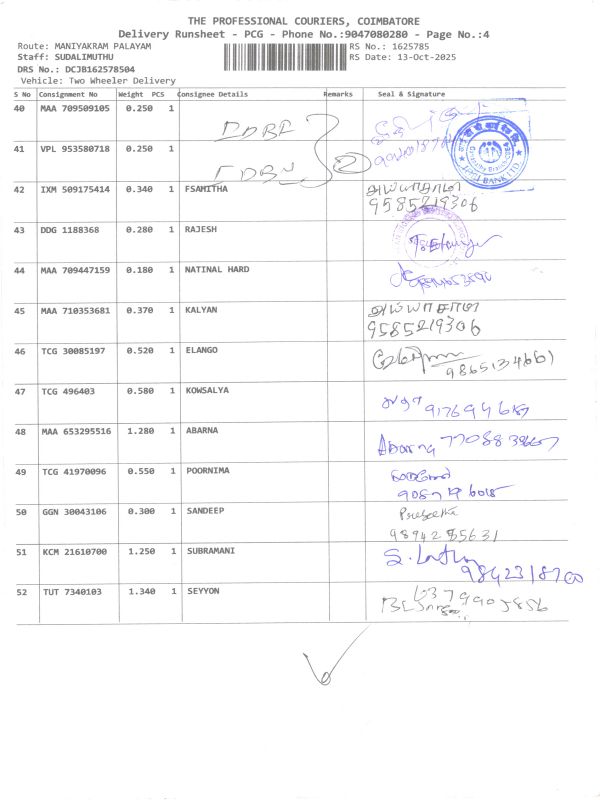 THE PROFESSIONAL COURIERS, COIMBATORE
Delivery Runsheet - PCG - Phone No.:9047080280 - Page No.:4
Route: MANIYAKRAM PALAYAM RS No.: 1625785
Staff: SUDALIMUTHU RS Date: 13-Oct-2025
DRS No.: DCJB162578504
Vehicle: Two Wheeler Delivery
S No Consignment No Weight PCS Consignee Details Remarks Seal & Signature
40 MAA 709509105 0.250 1
41 VPL 953580718 0.250 1
42 IXM 509175414 0.340 1 FSAMITHA அய்யாசாமி
9585219306
43 DDG 1188368 0.280 1 RAJESH
44 MAA 709447159 0.180 1 NATINAL HARD
45 MAA 710353681 0.370 1 KALYAN அய்யாசாமி
9585219306
46 TCG 30085197 0.520 1 ELANGO
9865134661
47 TCG 496403 0.580 1 KOWSALYA
48 MAA 653295516 1.280 1 ABARNA Abarna
49 TCG 41970096 0.550 1 POORNIMA
50 GGN 30043106 0.300 1 SANDEEP
9894285631
51 KCM 21610700 1.250 1 SUBRAMANI
9842318700
52 TUT 7340103 1.340 1 SEYYON